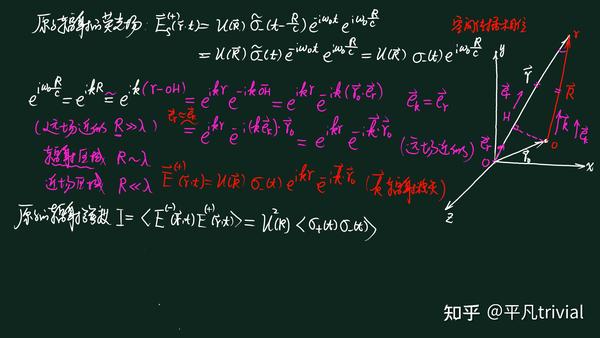 原子辐射的荧光场: E_s^(+)(r,t) = U(R) σ̃(t-R/c) e^{-iω₀t} e^{iω₀R/c}
= U(R) σ̃(t) e^{-iω₀t} e^{iω₀R/c} = U(R) σ(t) e^{iω₀R/c}
e^{iω₀R/c} = e^{ikR} ≈ e^{ik(r-OH)} = e^{ikr} e^{-ikOH} = e^{ikr} e^{-ik(r₀·e_r)} e_k = e_r
(远场近似 R≫λ) e_r≈e_k = e^{ikr} e^{-i(ke_k)·r₀} = e^{ikr} e^{-ik·r₀} (远场近似)
辐射区域 R~λ
近场区域 R≪λ E^(+)(r,t) = U(R) σ(t) e^{ikr} e^{-ik·r₀}
原子的辐射强度 I = ⟨E^(-)(r,t) E^(+)(r,t)⟩ = U²(R) ⟨σ₊(t) σ₋(t)⟩
空间传播相位
y
r
r
R
e_r
H
k
e_k
e_r
O
r₀
x
z
知乎 @平凡trivial